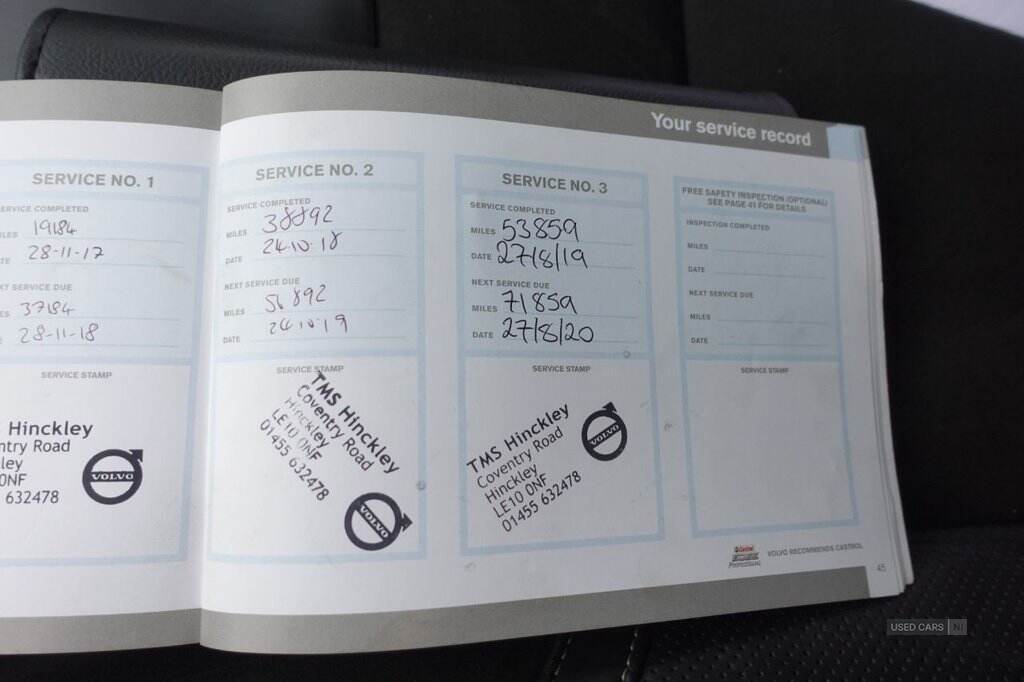 Your service record
SERVICE NO. 1
SERVICE COMPLETED
MILES 19184
DATE 28-11-17
NEXT SERVICE DUE
MILES 37184
DATE 28-11-18
SERVICE STAMP
S Hinckley
ntry Road
ley
0NF
632478
VOLVO
SERVICE NO. 2
SERVICE COMPLETED
MILES 38892
DATE 24.10.18
NEXT SERVICE DUE
MILES 56892
DATE 24.10.19
SERVICE STAMP
TMS Hinckley
Coventry Road
Hinckley
LE10 0NF
01455 632478
VOLVO
SERVICE NO. 3
SERVICE COMPLETED
MILES 53859
DATE 27/8/19
NEXT SERVICE DUE
MILES 71859
DATE 27/8/20
SERVICE STAMP
TMS Hinckley
Coventry Road
Hinckley
LE10 0NF
01455 632478
VOLVO
FREE SAFETY INSPECTION (OPTIONAL)
SEE PAGE 41 FOR DETAILS
INSPECTION COMPLETED
MILES
DATE
NEXT SERVICE DUE
MILES
DATE
SERVICE STAMP
Castrol
EDGE
Professional
VOLVO RECOMMENDS CASTROL
45
USED CARS NI